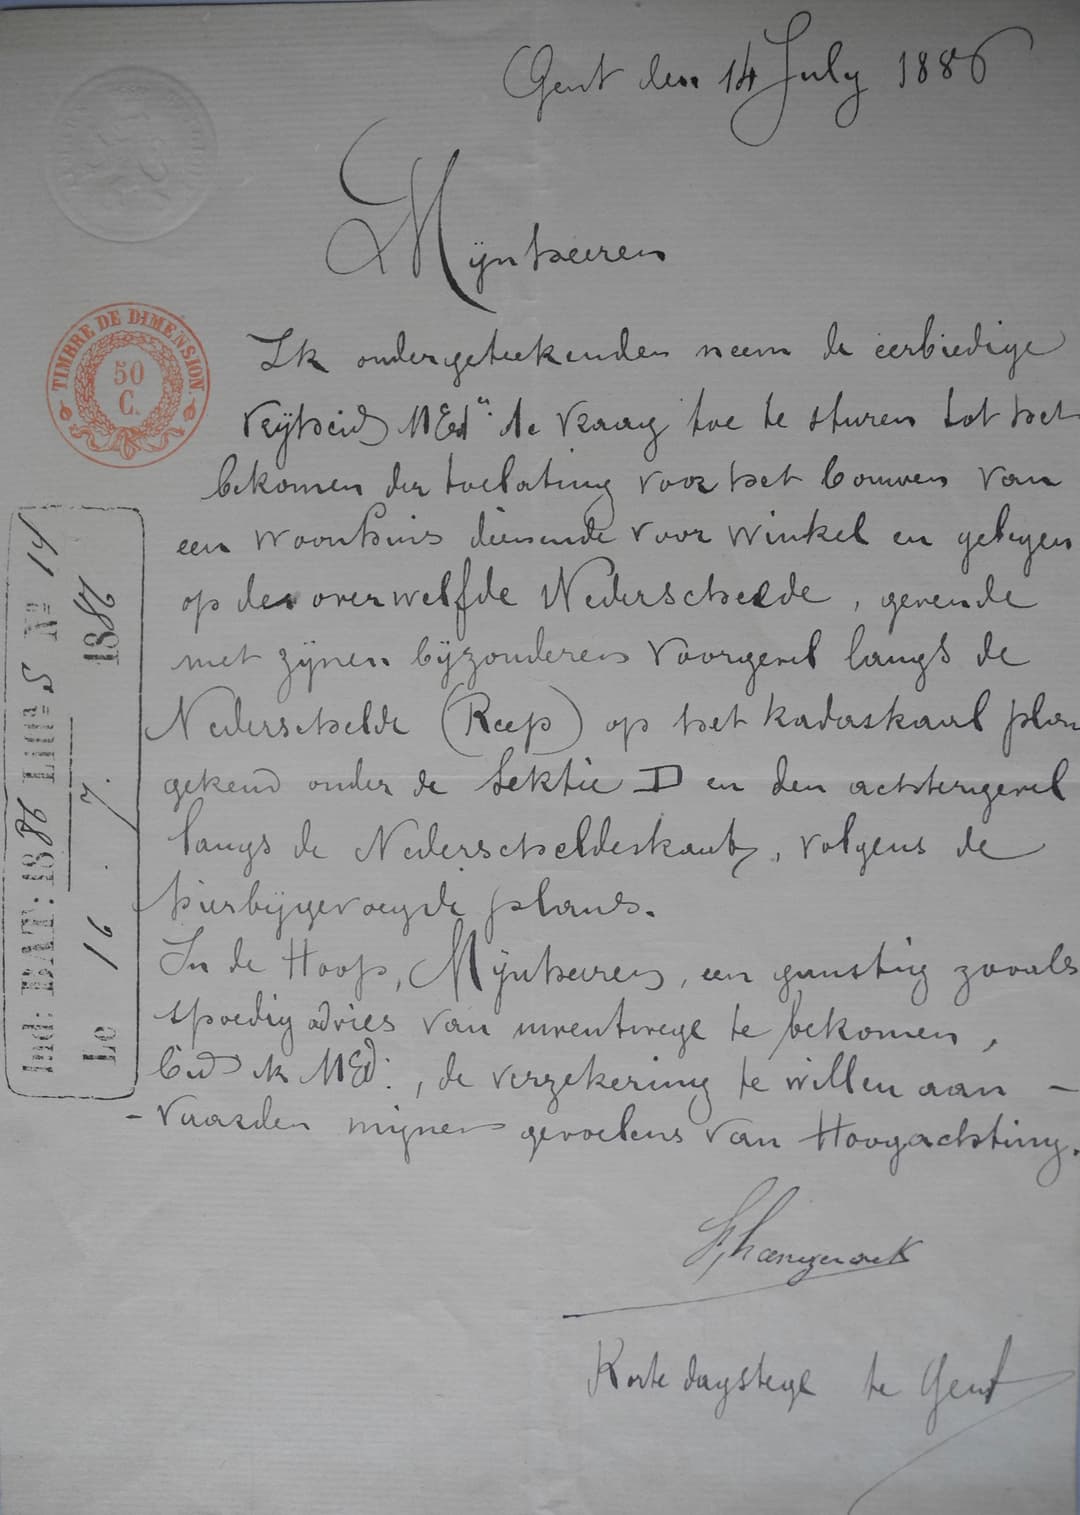 Gent den 14 July 1886
Mijnheeren
Ik ondergeteekenden neem de eerbiedige
vrijheid UEd" de vraag toe te sturen tot het
bekomen der toelating voor het bouwen van
een woonhuis dienende voor winkel en gelegen
op de overwelfde Nederschelde, gevende
met zijnen bijzonderen voorgevel langs de
Nederschelde (Reep) op het kadaskaal plan
gekend onder de Sektie D en den achtergevel
langs de Nederscheldeskant, volgens de
hierbijgevoegde plans.
In de Hoop, Mijnheeren, een gunstig zooals
spoedig advies van uwentwege te bekomen,
bid ik UEd:, de verzekering te willen aan -
- vaarden mijner gevoelens van Hoogachting.
Korte dagstege te Gent
TIMBRE DE DIMENSION.
50
C.
Ind: BAT: 1886 Litt: S No 14
Le 16 . 7. 1886